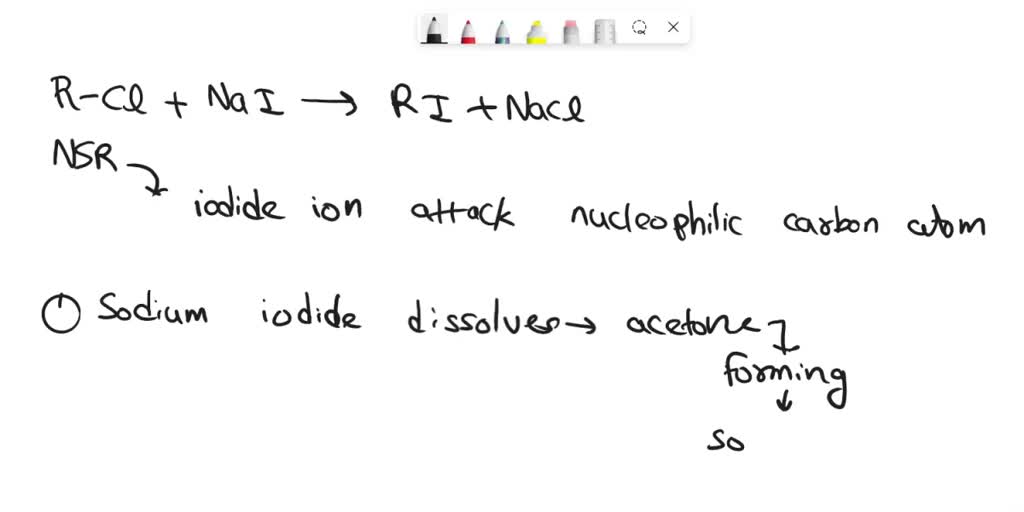 R-Cl + NaI → RI + NaCl
NSR
iodide ion attack nucleophilic carbon atom
① Sodium iodide dissolves → acetone
forming
so